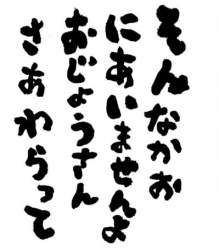 そんなかお
にあいませんよ
おじょうさん
さあわらって